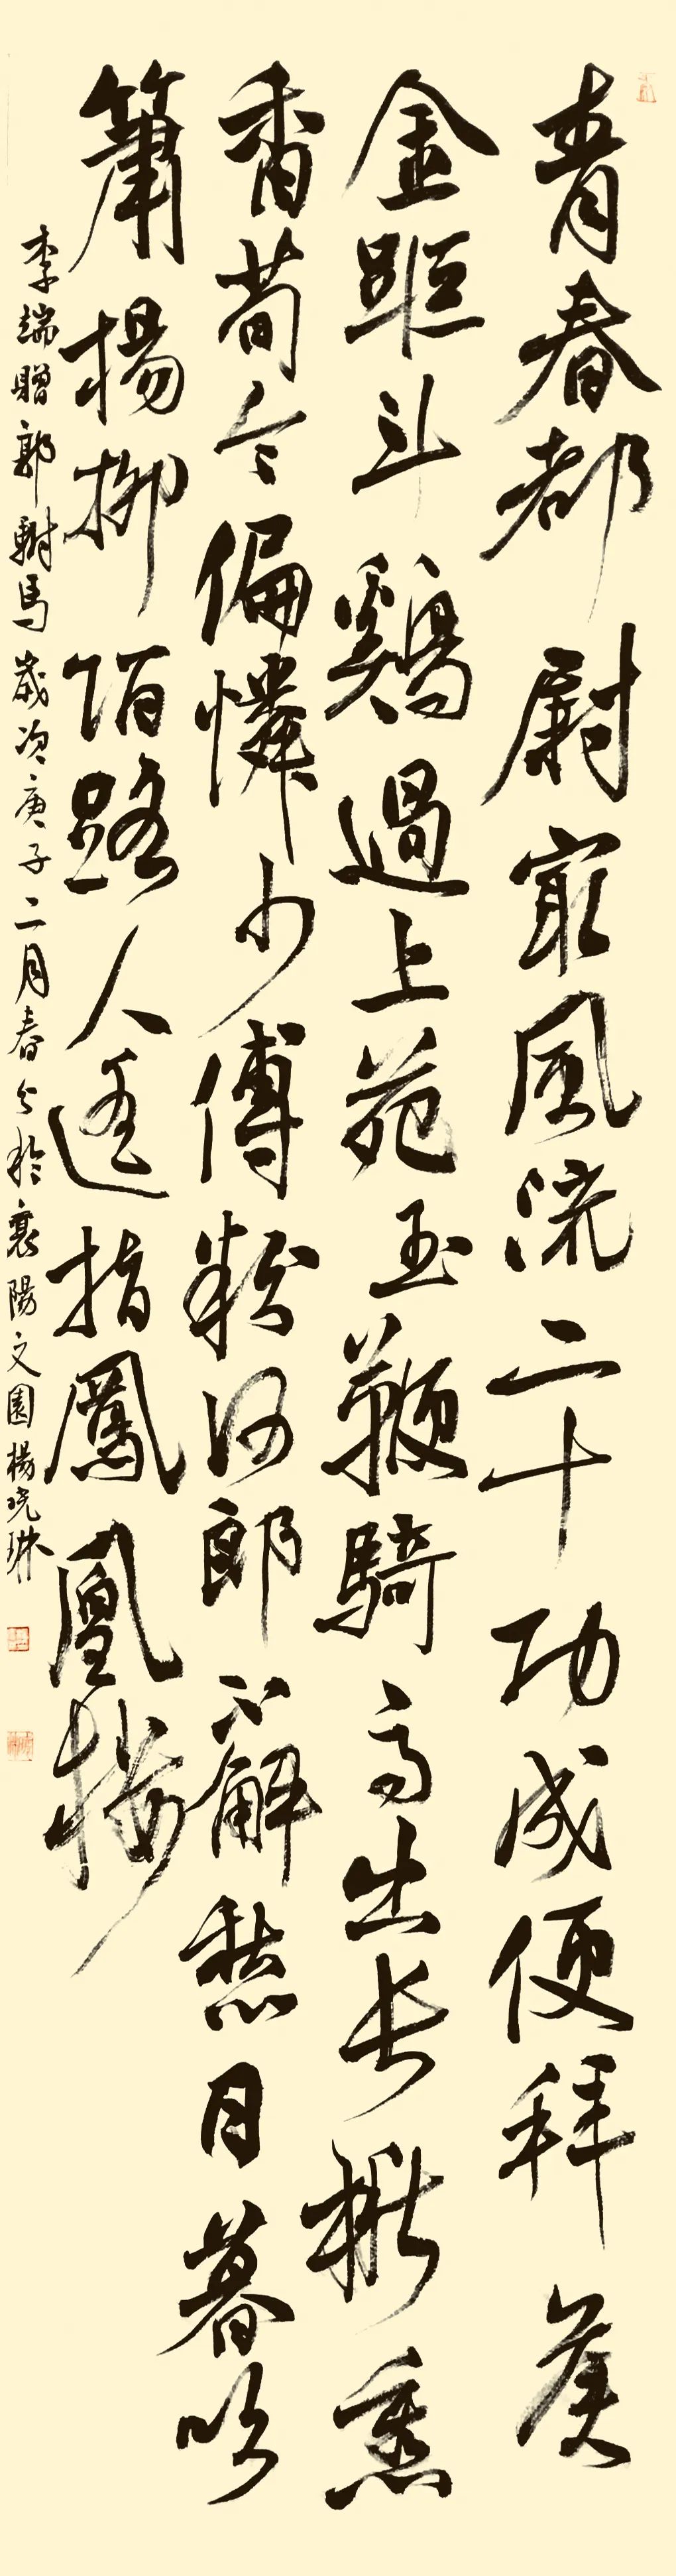 青春都尉寂風流二十功成便拜矦
金距斗鷄過上苑玉鞭騎馬出長楸熏
香荀令偏憐少傅粉何郎不解愁日暮吹
簫楊柳陌路人遙指鳳凰樓
李端贈郭駙馬歲次庚子二月春分於襄陽文園楊曉琳